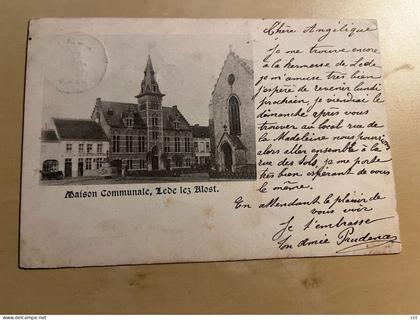 Chère Angélique
Je me trouve encore
à la kermesse de Lede
je m'amuse très bien
j'espère de revenir lundi
prochaen, je viendrai le
dimanche après vous
trouver au local rue de
la Madeleine nous pouvons
alors aller ensemble à la
rue des Sols, je me porte
très bien espérant de vous
le même.
En attendant le plaisir de
vous voir
Je t'embrasse
En amie Prudence
Maison Communale, Lede lez Alost.